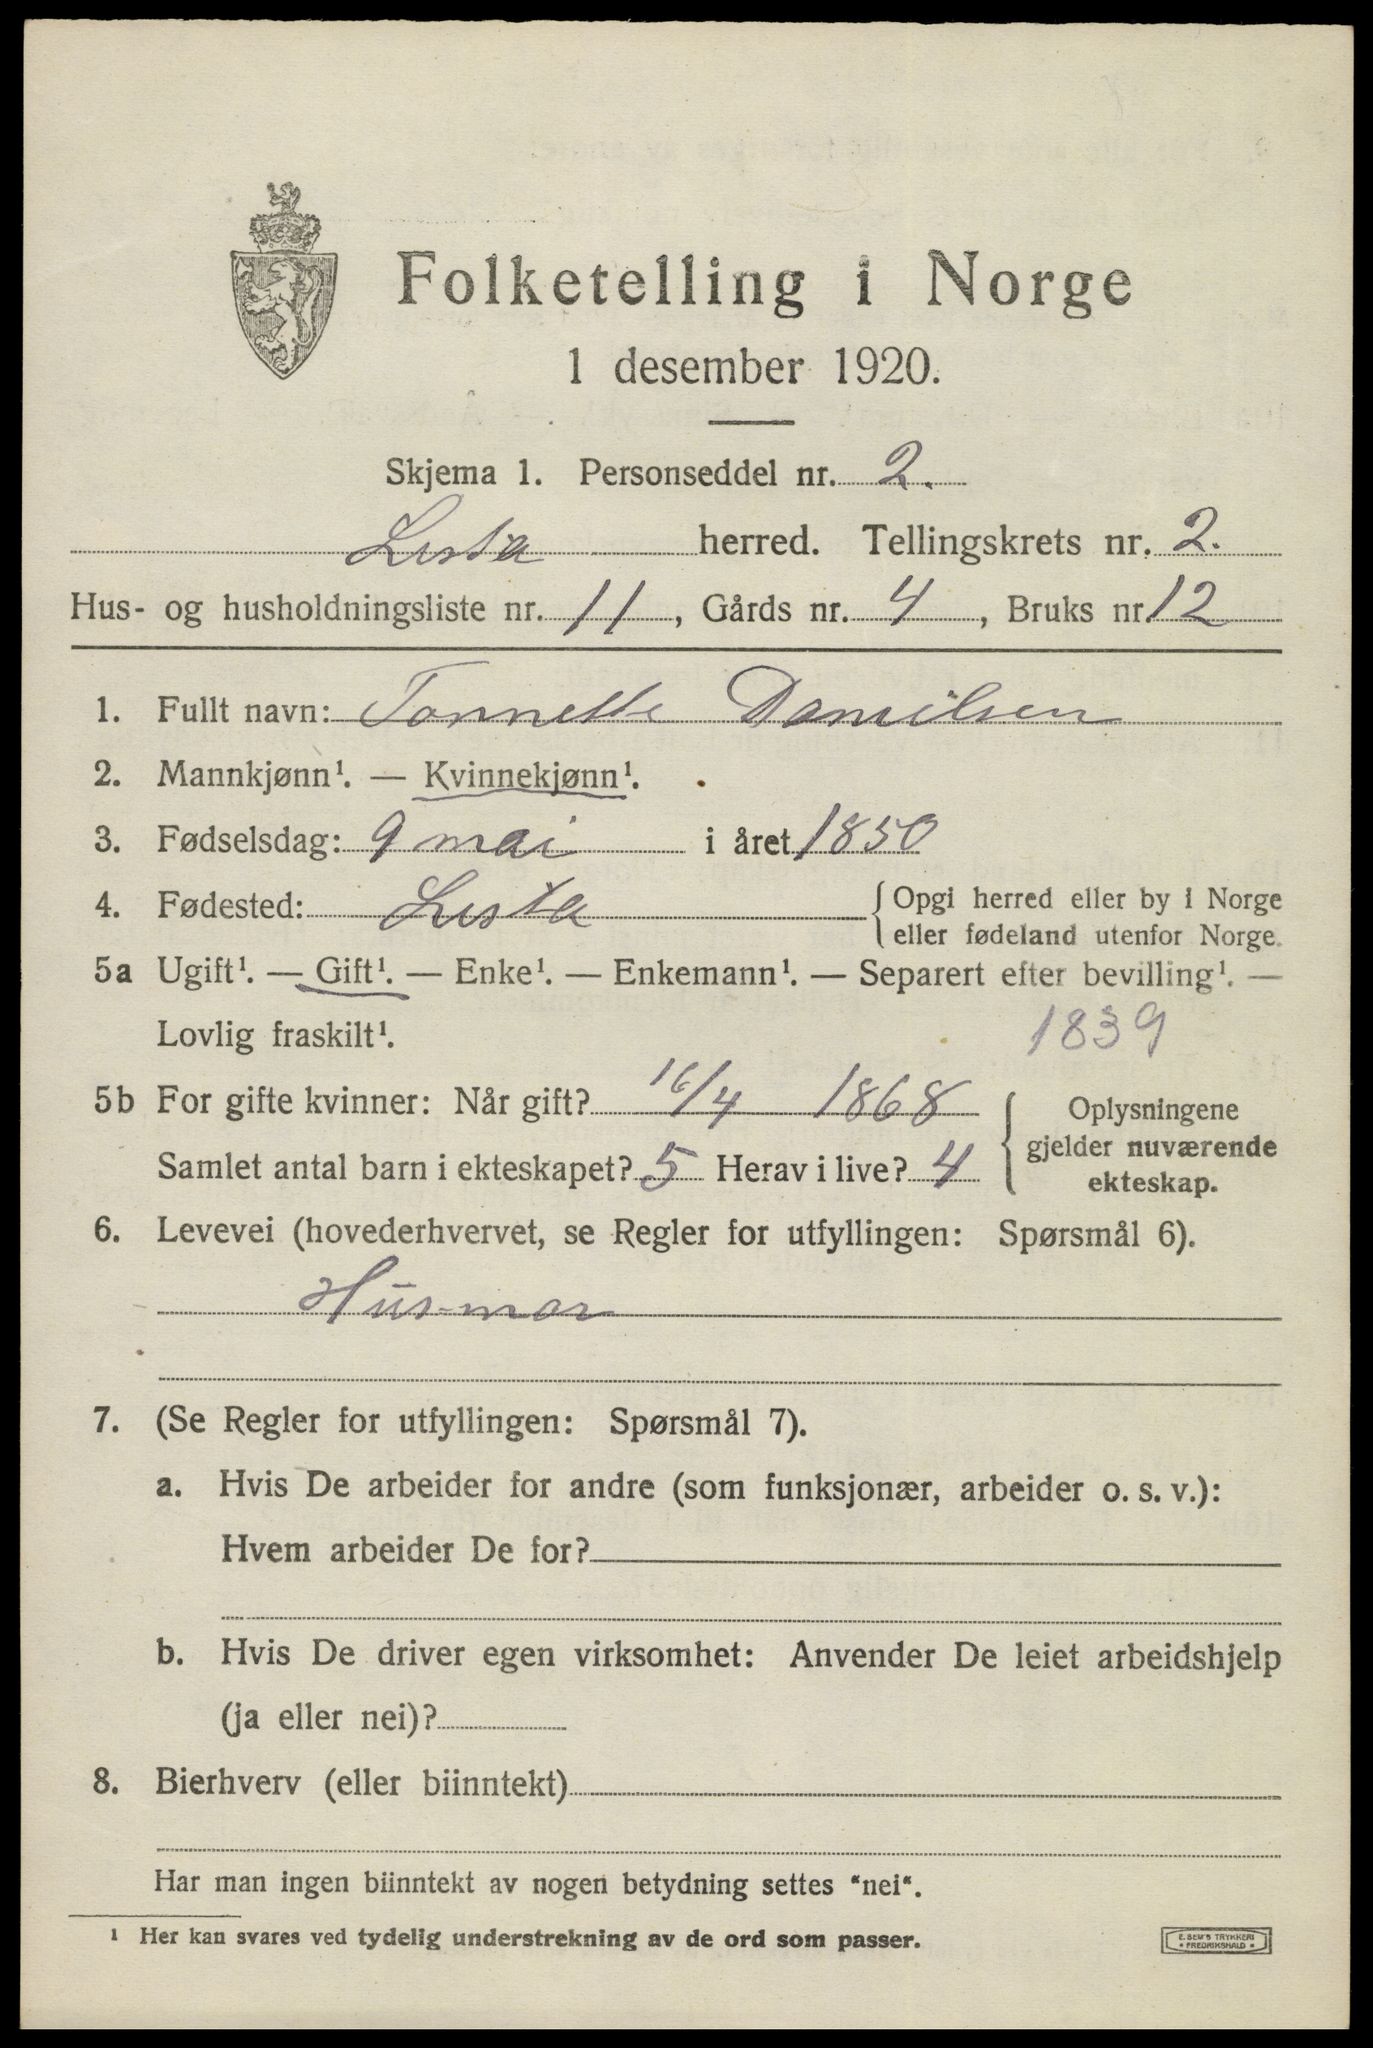 Folketelling i Norge
1 desember 1920.
Skjema 1. Personseddel nr. 2.
Lista herred. Tellingskrets nr. 2.
Hus- og husholdningsliste nr. 11, Gårds nr. 4, Bruks nr. 12
1. Fullt navn: Tonnette Danielsen
2. Mannkjønn¹. — Kvinnekjønn¹.
3. Fødselsdag: 9 mai i året 1850
4. Fødested: Lista { Opgi herred eller by i Norge
eller fødeland utenfor Norge.
5a Ugift¹. — Gift¹. — Enke¹. — Enkemann¹. — Separert efter bevilling¹. —
Lovlig fraskilt¹. 1839
5b For gifte kvinner: Når gift? 16/4 1868 { Oplysningene
gjelder nuværende
ekteskap.
Samlet antal barn i ekteskapet? 5 Herav i live? 4
6. Levevei (hovederhvervet, se Regler for utfyllingen: Spørsmål 6).
Husmor
7. (Se Regler for utfyllingen: Spørsmål 7).
a. Hvis De arbeider for andre (som funksjonær, arbeider o. s. v.):
Hvem arbeider De for?
b. Hvis De driver egen virksomhet: Anvender De leiet arbeidshjelp
(ja eller nei)?
8. Bierhverv (eller biinntekt)
Har man ingen biinntekt av nogen betydning settes "nei".
¹ Her kan svares ved tydelig understrekning av de ord som passer.
E. SEM'S TRYKKERI
• FREDRIKSHALD •